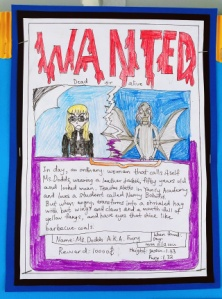 WANTED
Dead or alive
In day, an ordinary woman that calls itself
Ms. Dodds wearing a leather jacket, fifty years old
and
Maths Teacher in Yancy Academy
and has a student called Nancy Bobofit.
But when angry, transforms into a shriveled hag
with bat wings and claws and a mouth full of
yellow fangs, and eyes that shine like
barbecue coals.
Name: Ms. Dodds A.K.A. Fury
Reward: 1000